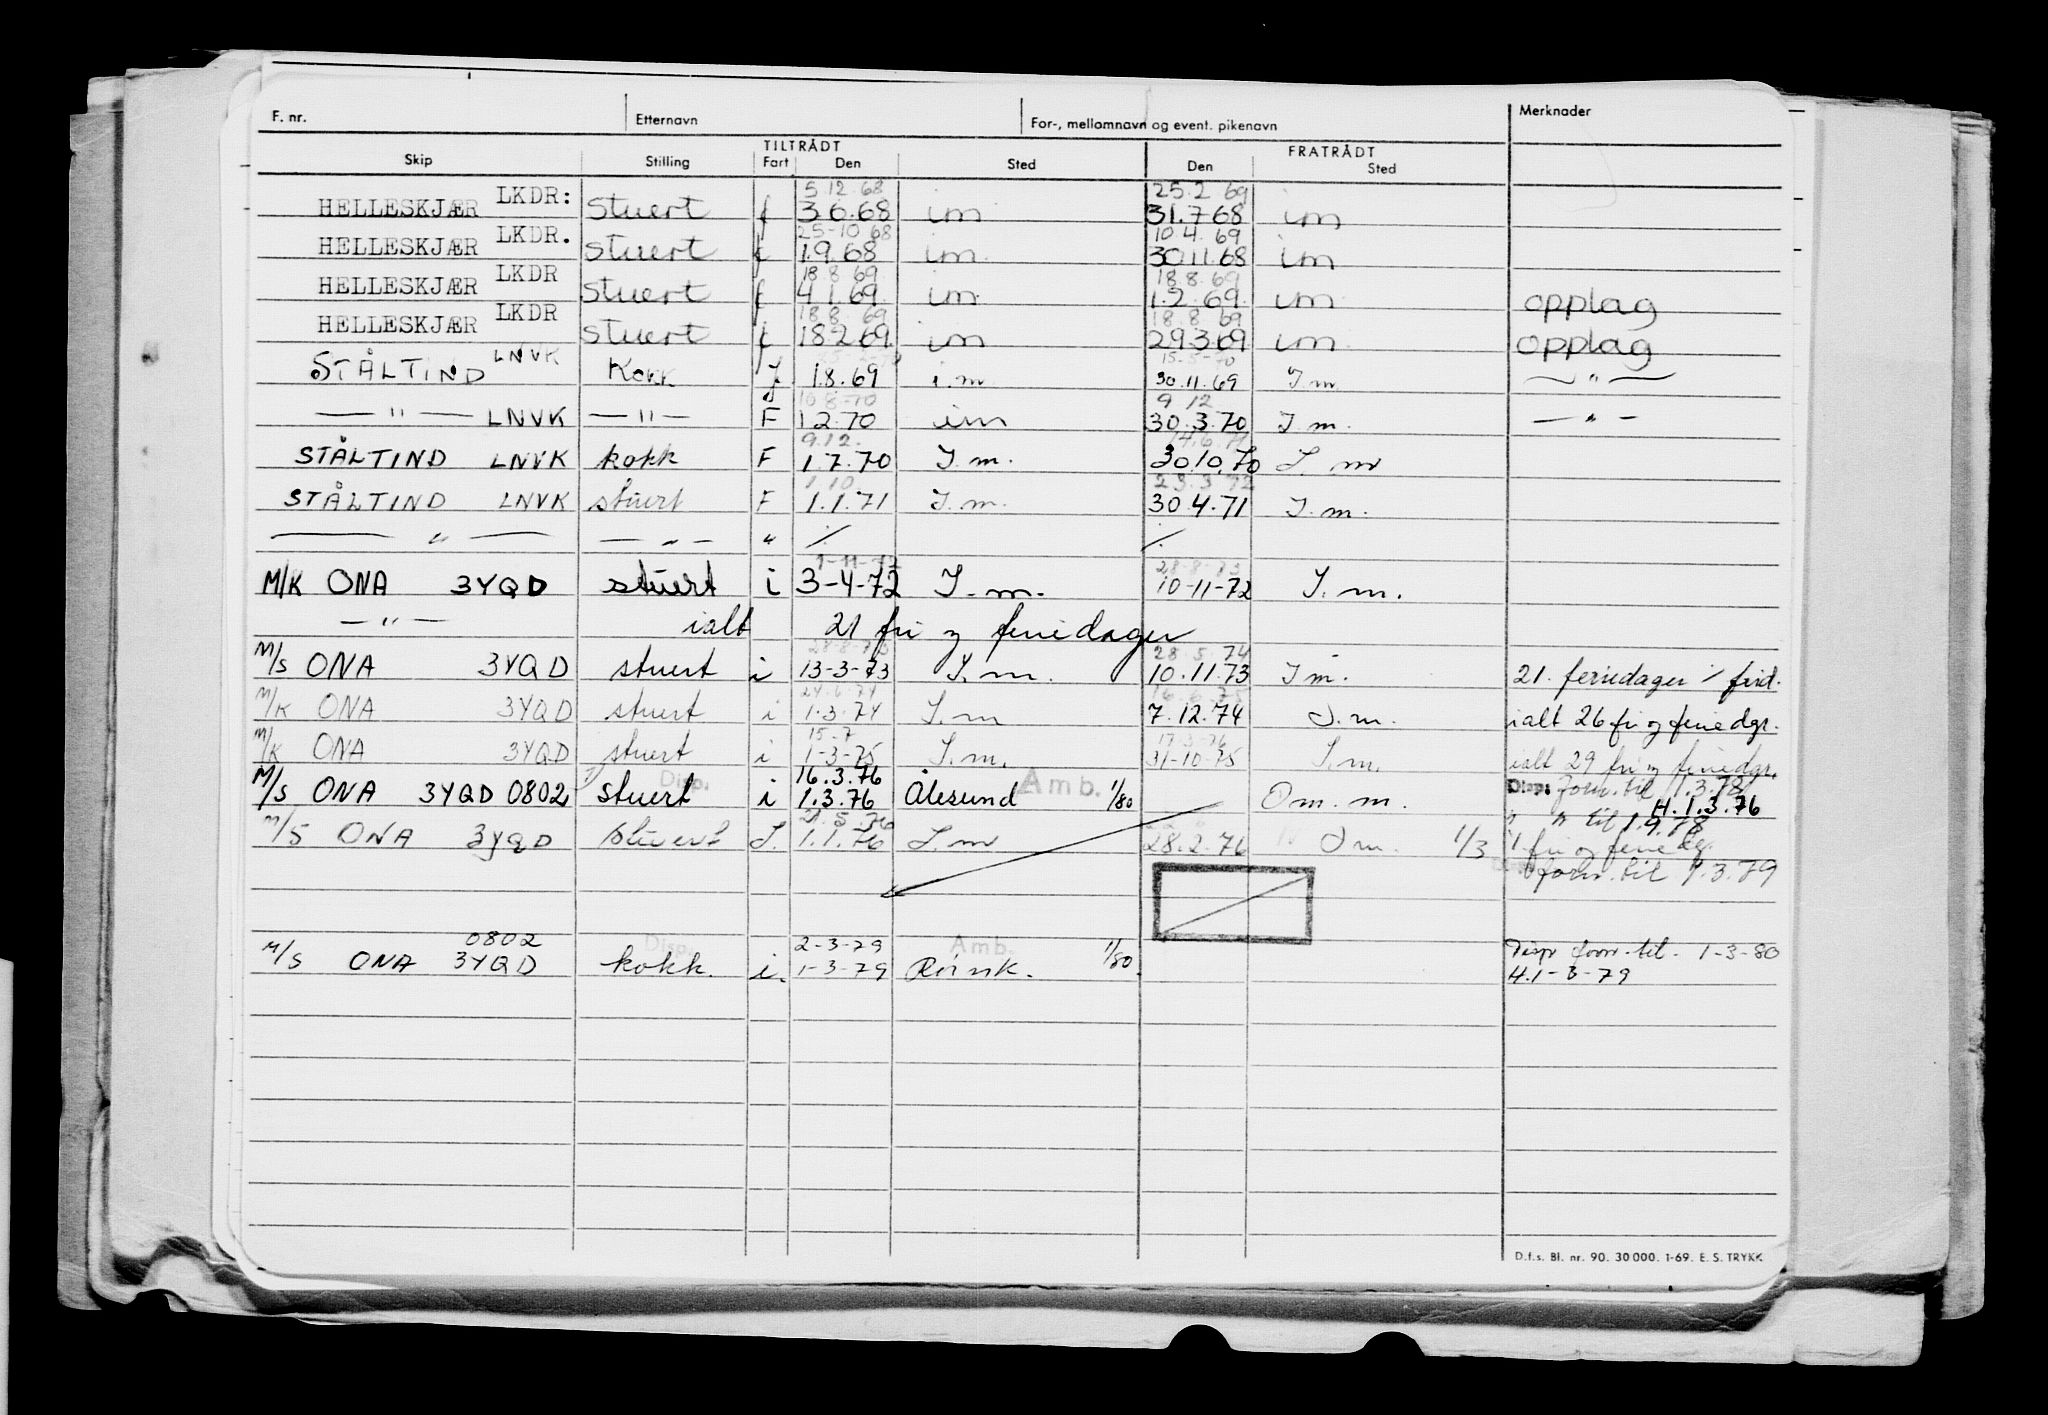 F. nr. Etternavn For-, mellomnavn og event. pikenavn Merknader
TILTRÅDT FRATRÅDT
Skip Stilling Fart Den Sted Den Sted
5 12.68 25.2 69
HELLESKJÆR LKDR: stuert f 3 6.68 im 31.7 68 im
25-10 68 10 4. 69
HELLESKJÆR LKDR. stuert f 1.9.68 im. 30.11.68 im
18 8 69 18.8.69
HELLESKJÆR LKDR stuert f 4 1.69. im. 1.2.69. im opplag
18.8 69 18.8 69
HELLESKJÆR LKDR stuert f 18.2.69. im 29.3.69 im. opplag
15.5-70
STÅLTIND LNVK Kokk f 1.8.69 i.m. 30.11.69 I.m. — " —
10.8-70 9 12
— " — LNVK — " — F 1.2.70 im 30.3.70 I m. — " —
9.12. 14.6.71
STÅLTIND LNVK kokk F 1.7.70 I.m. 30.10.70 I. m
1.10. 23.3 72
STÅLTIND LNVK stuert F 1.1.71 I.m. 30.4.71 I.m.
— " — — " — " / /.
1-11-72 28-8-73
M/K ONA 3YQD stuert i 3-4-72 I.m. 10-11-72 I.m.
— " — ialt 21 fri og feriedager
28-8-73 28.5.74
M/S ONA 3YQD stuert i 13-3-73 I.m. 10.11.73 I m. 21. feriedager / frid.
24.6.74 16.6.75
M/K ONA 3YQD stuert i 1.3.74 I.m 7.12.74 I.m. ialt 26 fri og feriedgr.
15.7 17.3.76
M/K ONA 3YQD stuert i 1-3-75 I.m. 31-10-75 I.m. ialt 29 fri og feriedgr.
Disp. 16.3.76 Amb. Disp: forn. til 1.3.78
M/S ONA 3YQD 0802 stuert i 1.3.76 Ålesund 1/80 Om. m. H.1.3.76
21.5.76 " til 1.9.78
M/S ONA 3YQD Stuert I. 1.1.76 I.m 28.2.76 Om. 1/3 1 fri og feriedg.
forn. til 1.3.79
0802 Disp. 2-3-79 Amb. Disp forn. til. 1-3-80
M/S ONA 3YQD kokk. i. 1-3-79 1/80. H.1-3-79
D.f.s. Bl. nr. 90. 30 000. 1-69. E. S. TRYKK